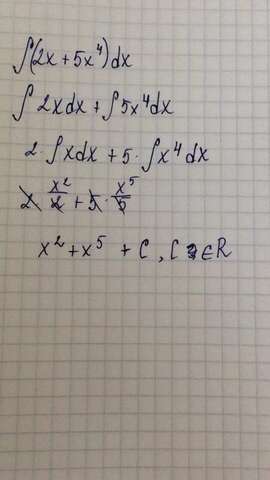 ∫(2x + 5x⁴)dx
∫ 2xdx + ∫ 5x⁴dx
2·∫xdx + 5·∫x⁴dx
2·x²/2 + 5·x⁵/5
x² + x⁵ + C, C ∈ R